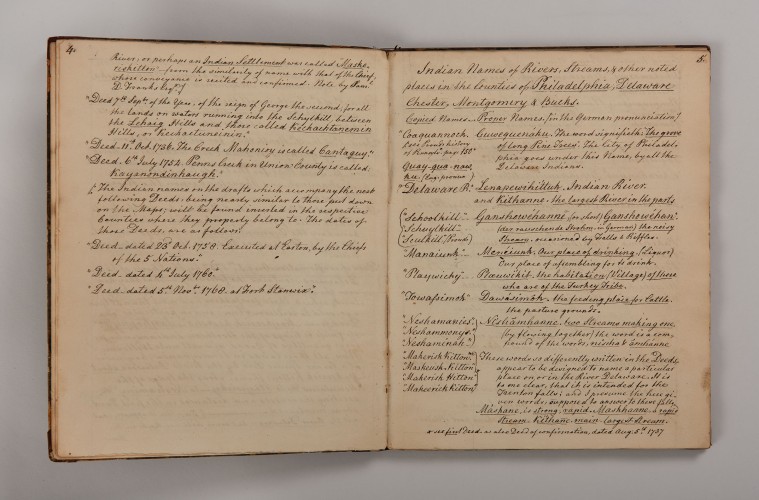 4.
River, or perhaps an Indian Settlement was called Masko-
rickitton from the similarity of name with that of the Chief,
whose conveyance is recited and confirmed. Note by Saml.
D. Franks Esqr.
"Deed 7th Sept. of the year, of the reign of George the second, for all
the lands on waters running into the Schuylkill, between
the Lehaig Hills and those called Keehachtanemin
Hills, or Keehatuneinin."
"Deed 11th Oct. 1736. The Creek Mahonioy is called Cantaguy."
"Deed 6th July 1754. Penns Creek in Union County is called
Kayanondinhaugh."
The Indian names on the drafts which accompany the next
following Deeds being nearly similar to those put down
on the Maps; will be found inserted in the respective
Counties where they properly belong. The dates of
those Deeds, are as follows:
"Deed dated 23d Oct. 1758. Executed at Easton, by the Chiefs
of the 5 Nations."
"Deed dated 4th July 1760."
"Deed dated 5th Novr. 1768 at Fort Stanwix."
5.
Indian Names of Rivers, Streams, & other noted
places in the Counties of Philadelphia, Delaware
Chester, Montgomery & Bucks.
Copied Names. Proper Names. (in the German pronunciation)
"Coaquannock. Cuwequenáku. The word signifieth: The grove
of long Pine Trees. The City of Philadel-
phia goes under this Name, by all the
Delaware Indians.
Quay-qua-naw
ku. (Eng. pronun.)
"Delaware Rr. Lenapewihittuk, Indian River.
and Kithanne, the largest River in these parts
"Schoolkill" Ganshowehanne (or short) Ganshowehan.
"Schuylkill" (der rauschende Strohm, in German) the noisy
"Sculkill" (Proud) Stream, occasioned by Falls & Ripples.
"Manaiunk" Meneiunk. Our place of drinking (Liquor)
Our place of assembling for to drink.
"Playwichy" Plæuwikit, the habitation (Village) of those
who are of the Turkey Tribe.
"Towassimok" Dawasimök, the feeding place for Cattle,
the pasture grounds.
"Neshamanies" Neshämhanne, two Streams making one
"Neshammonys" (by flowing together) the word is a com-
"Neshaminah" pound of the words, nischa & ämhanne
"Makerish Kitton" These words so differently written in the Deeds
Maskeush Kitton appear to be designed to name a particular
Makerish Hitton place on or in the River Delaware. It is
Makeerick Kitton" to me clear, that it is intended for the
Trenton falls; and I presume the here gi-
ven words, supposed to answer to these falls
Maskane, is strong, rapid Maskhanne a rapid
Stream Kithanne main largest Stream.
see first Deed as also Deed of confirmation, dated Aug. 5th 1737